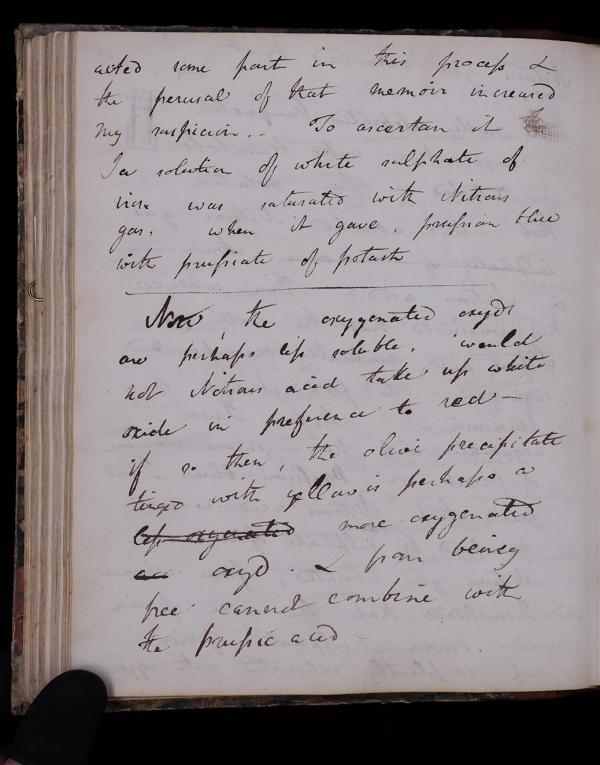 acted some part in this process &
the perusal of that memoir increased
my suspicion.. To ascertain it
a solution of white sulphate of
iron was saturated with Nitrous
gas. when it gave, prussian blue
with prussiate of potash
Now, the oxygenated oxyds
are perhaps less soluble. would
not Nitrous acid take up white
oxide in preference to red —
if so then, the olive precipitate
tinged with yellow is perhaps a
less oxygenated more oxygenated
oxyd. & from being
free cannot combine with
the prussic acid